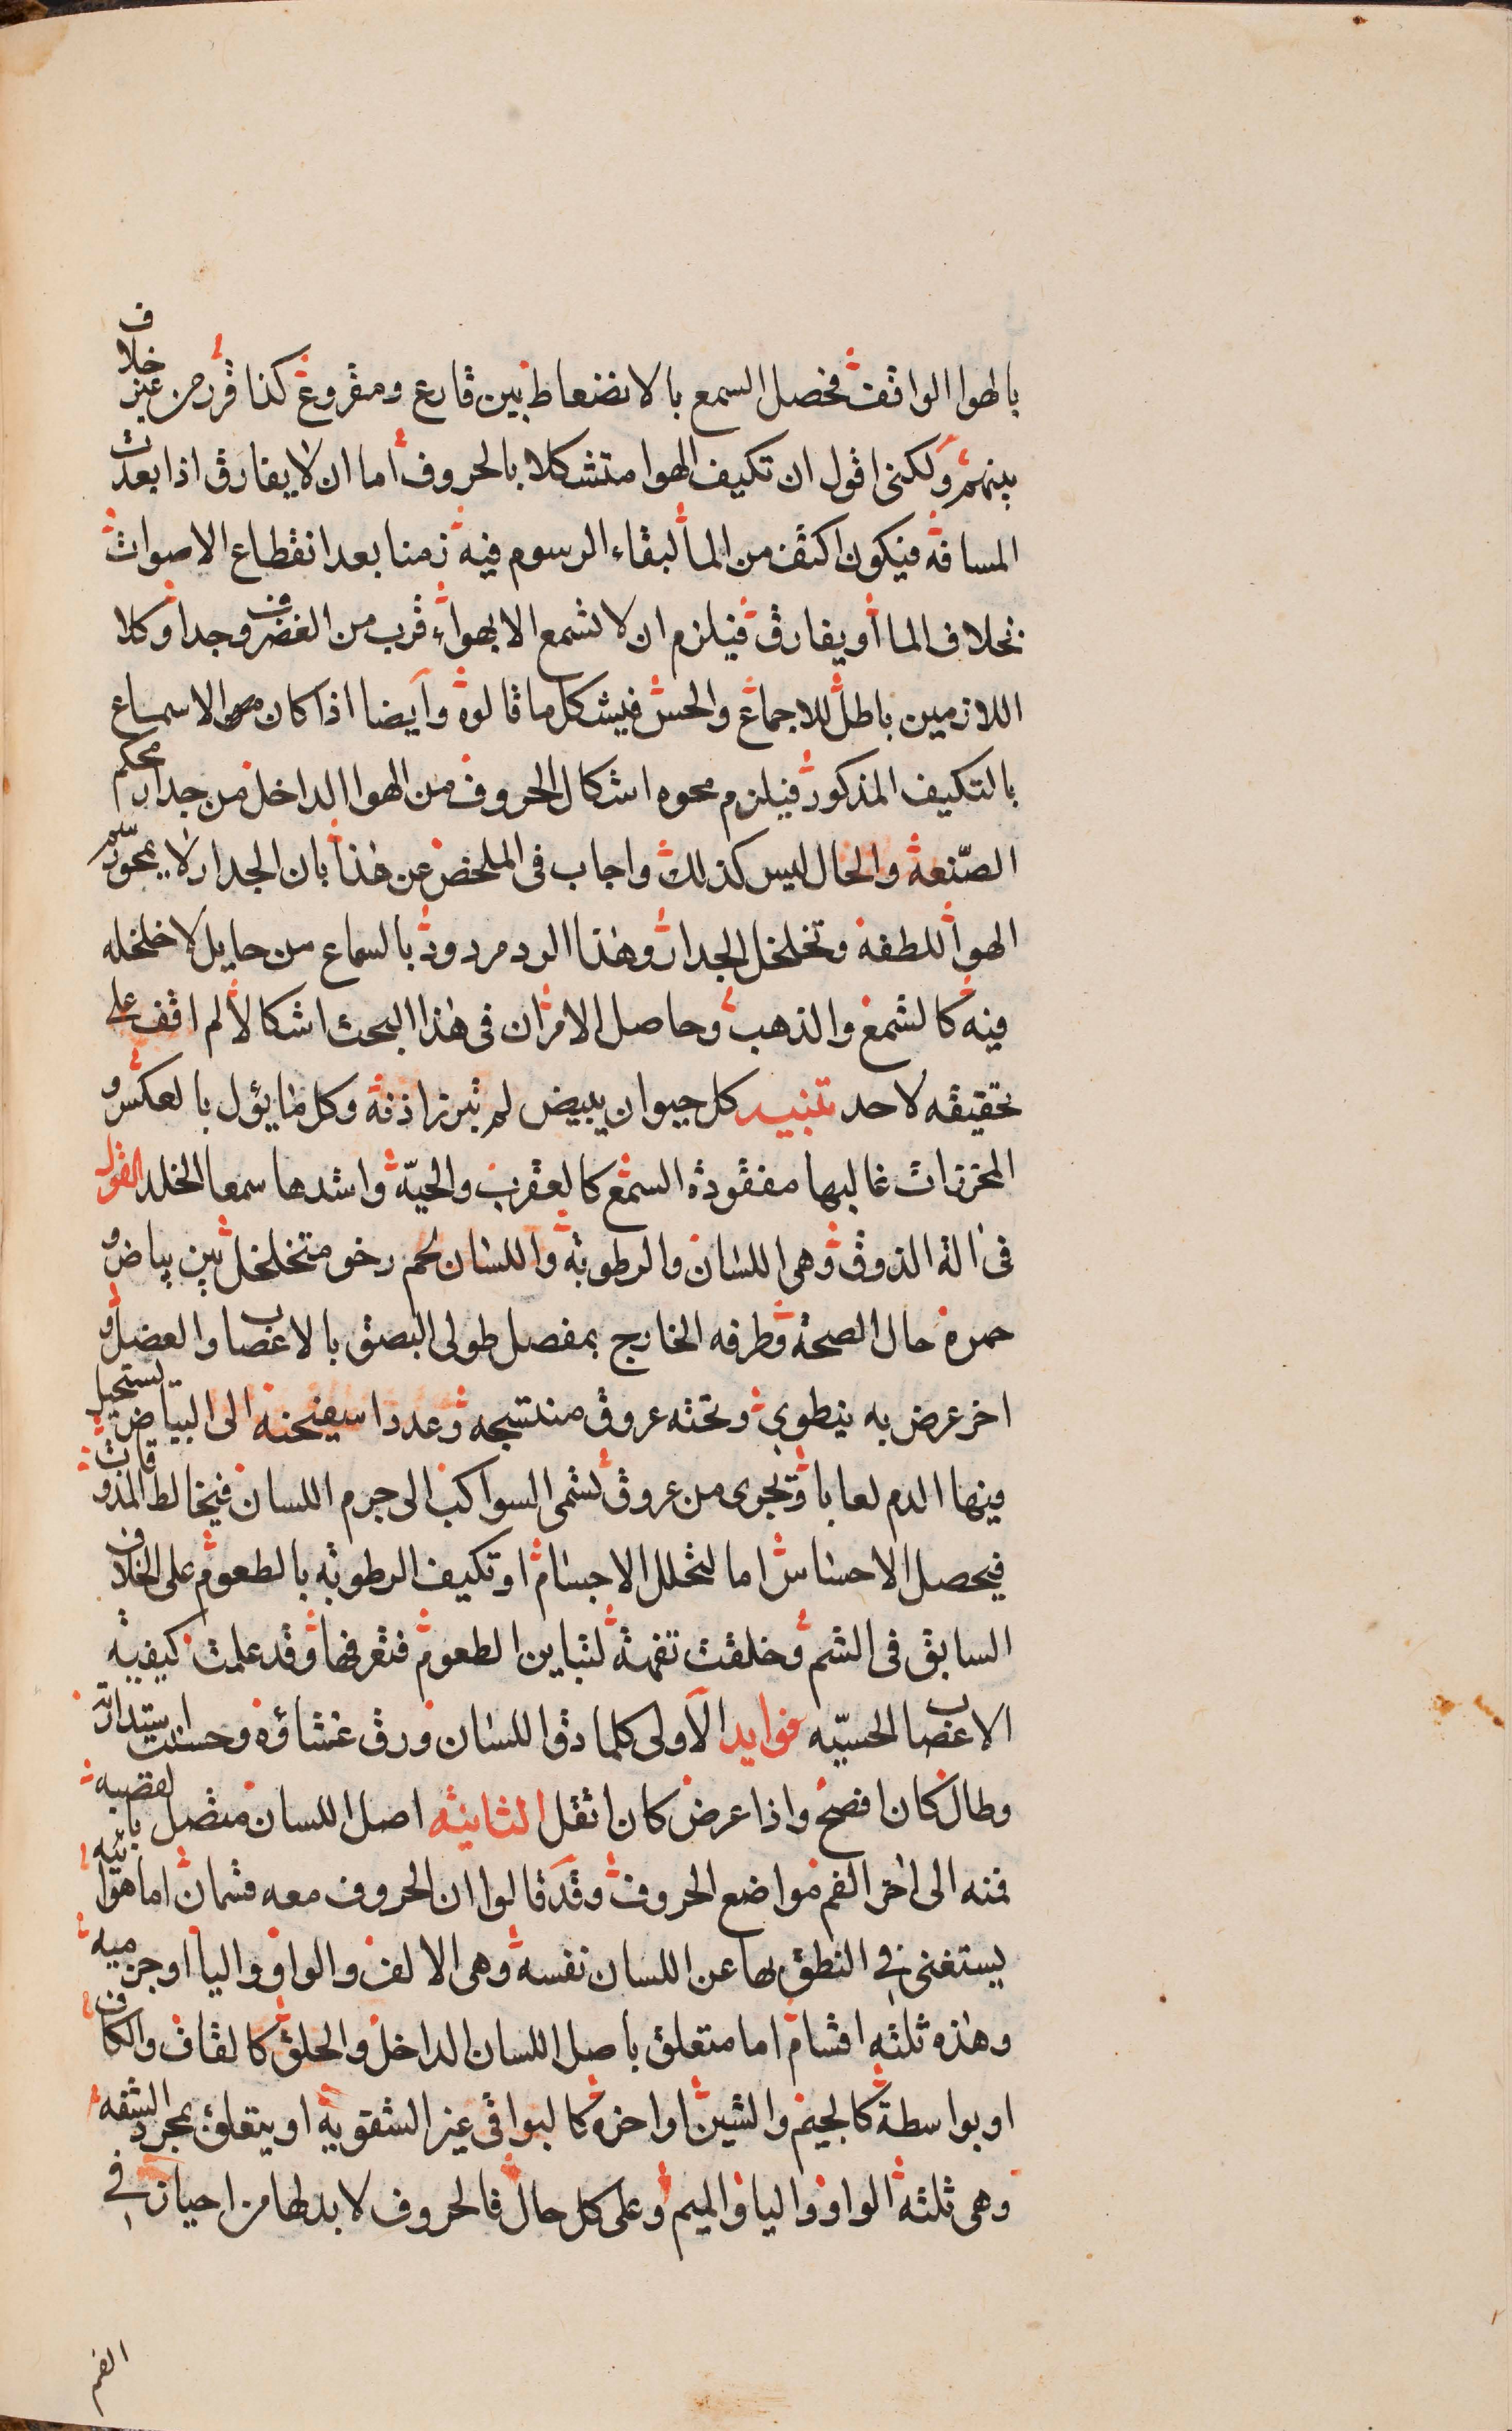 بالهوا الواقف فحصل السمع بالانضغاط بين قارع ومقروع كذا قرر من غير خلاف
بينهم ولكنى اقول ان تكيف الهوا متشكلا بالحروف اما ان لا يفارق اذا بعدت
المسافة فيكون اكثف من الما لبقاء الرسوم فيه زمنا بعد انقطاع الاصوات
بخلاف الما أو يفارق فيلزم ان لا نسمع الا بهواء قرب من الغضروف جدا وكلا
اللازمين باطل للاجماع والحس فيشكل ما قالوه وأيضا اذا كان الاسماع
بالتكيف المذكور فيلزم محو اشكال الحروف من الهوا الداخل من جدار محكم
الصنعة والحال ليس كذلك واجاب فى الملخص عن هذا بان الجدار لا يمحو رسم
الهوا للطفه وتخلخل الجدار وهذا الرد مردود بالسماع من حايل لا خلخله
فيه كالشمع والذهب وحاصل الامر ان فى هذا البحث اشكالا لم اقف على
تحقيقه لاحد تنبيه كل حيوان يبيض لم تبرز اذنه وكل ما يؤل بالعكس و
المحززات غالبها مفقودة السمع كالعقرب والحيّة واشدها سمعا الخلد القول
فى الة الذوق وهى اللسان والرطوبة واللسان لحم رخو متخلخل بين بياض و
حمرة حال الصحة وطرفه الخارج بمفصل طولى التصق بالاعصاب والعضل و
اخر عرض به ينطوى وتحته عروق منتسجه وغدد اسفنجنه الى البياض يستحيل
فيها الدم لعابا وتجرى من عروق تسمى السواكب الى جرم اللسان فيخالط المذوقات
فيحصل الاحساس اما لتحلل الاجسام او تكيف الرطوبة بالطعوم على الخلاف
السابق فى الشم وخلقت تفهة لتباين الطعوم فتعرفها وقد علمت كيفية
الاعصاب الحسيّه فوايد الأولى كلما دق اللسان ورق غشاؤه وحسنت استدارته
وطال كان افصح واذا عرض كان اثقل الثانية اصل اللسان متصل بالقصبه
فمنه الى اخر الفم مواضع الحروف وقد قالوا ان الحروف معه قسمان اما هوائيه
يستغنى فى النطق بها عن اللسان نفسه وهى الالف والواو واليا او جرميه
وهذه ثلثه اقسام اما متعلق باصل اللسان الداخل والحلق كالقاف والكاف
او بواسطة كالجيم والشين او اخره كالبواقى غير الشفوية او يتعلق بمجرد الشفه
وهى ثلثة الواو واليا والميم وعلى كل حال فالحروف لا بد لها من احياز فى
الفم